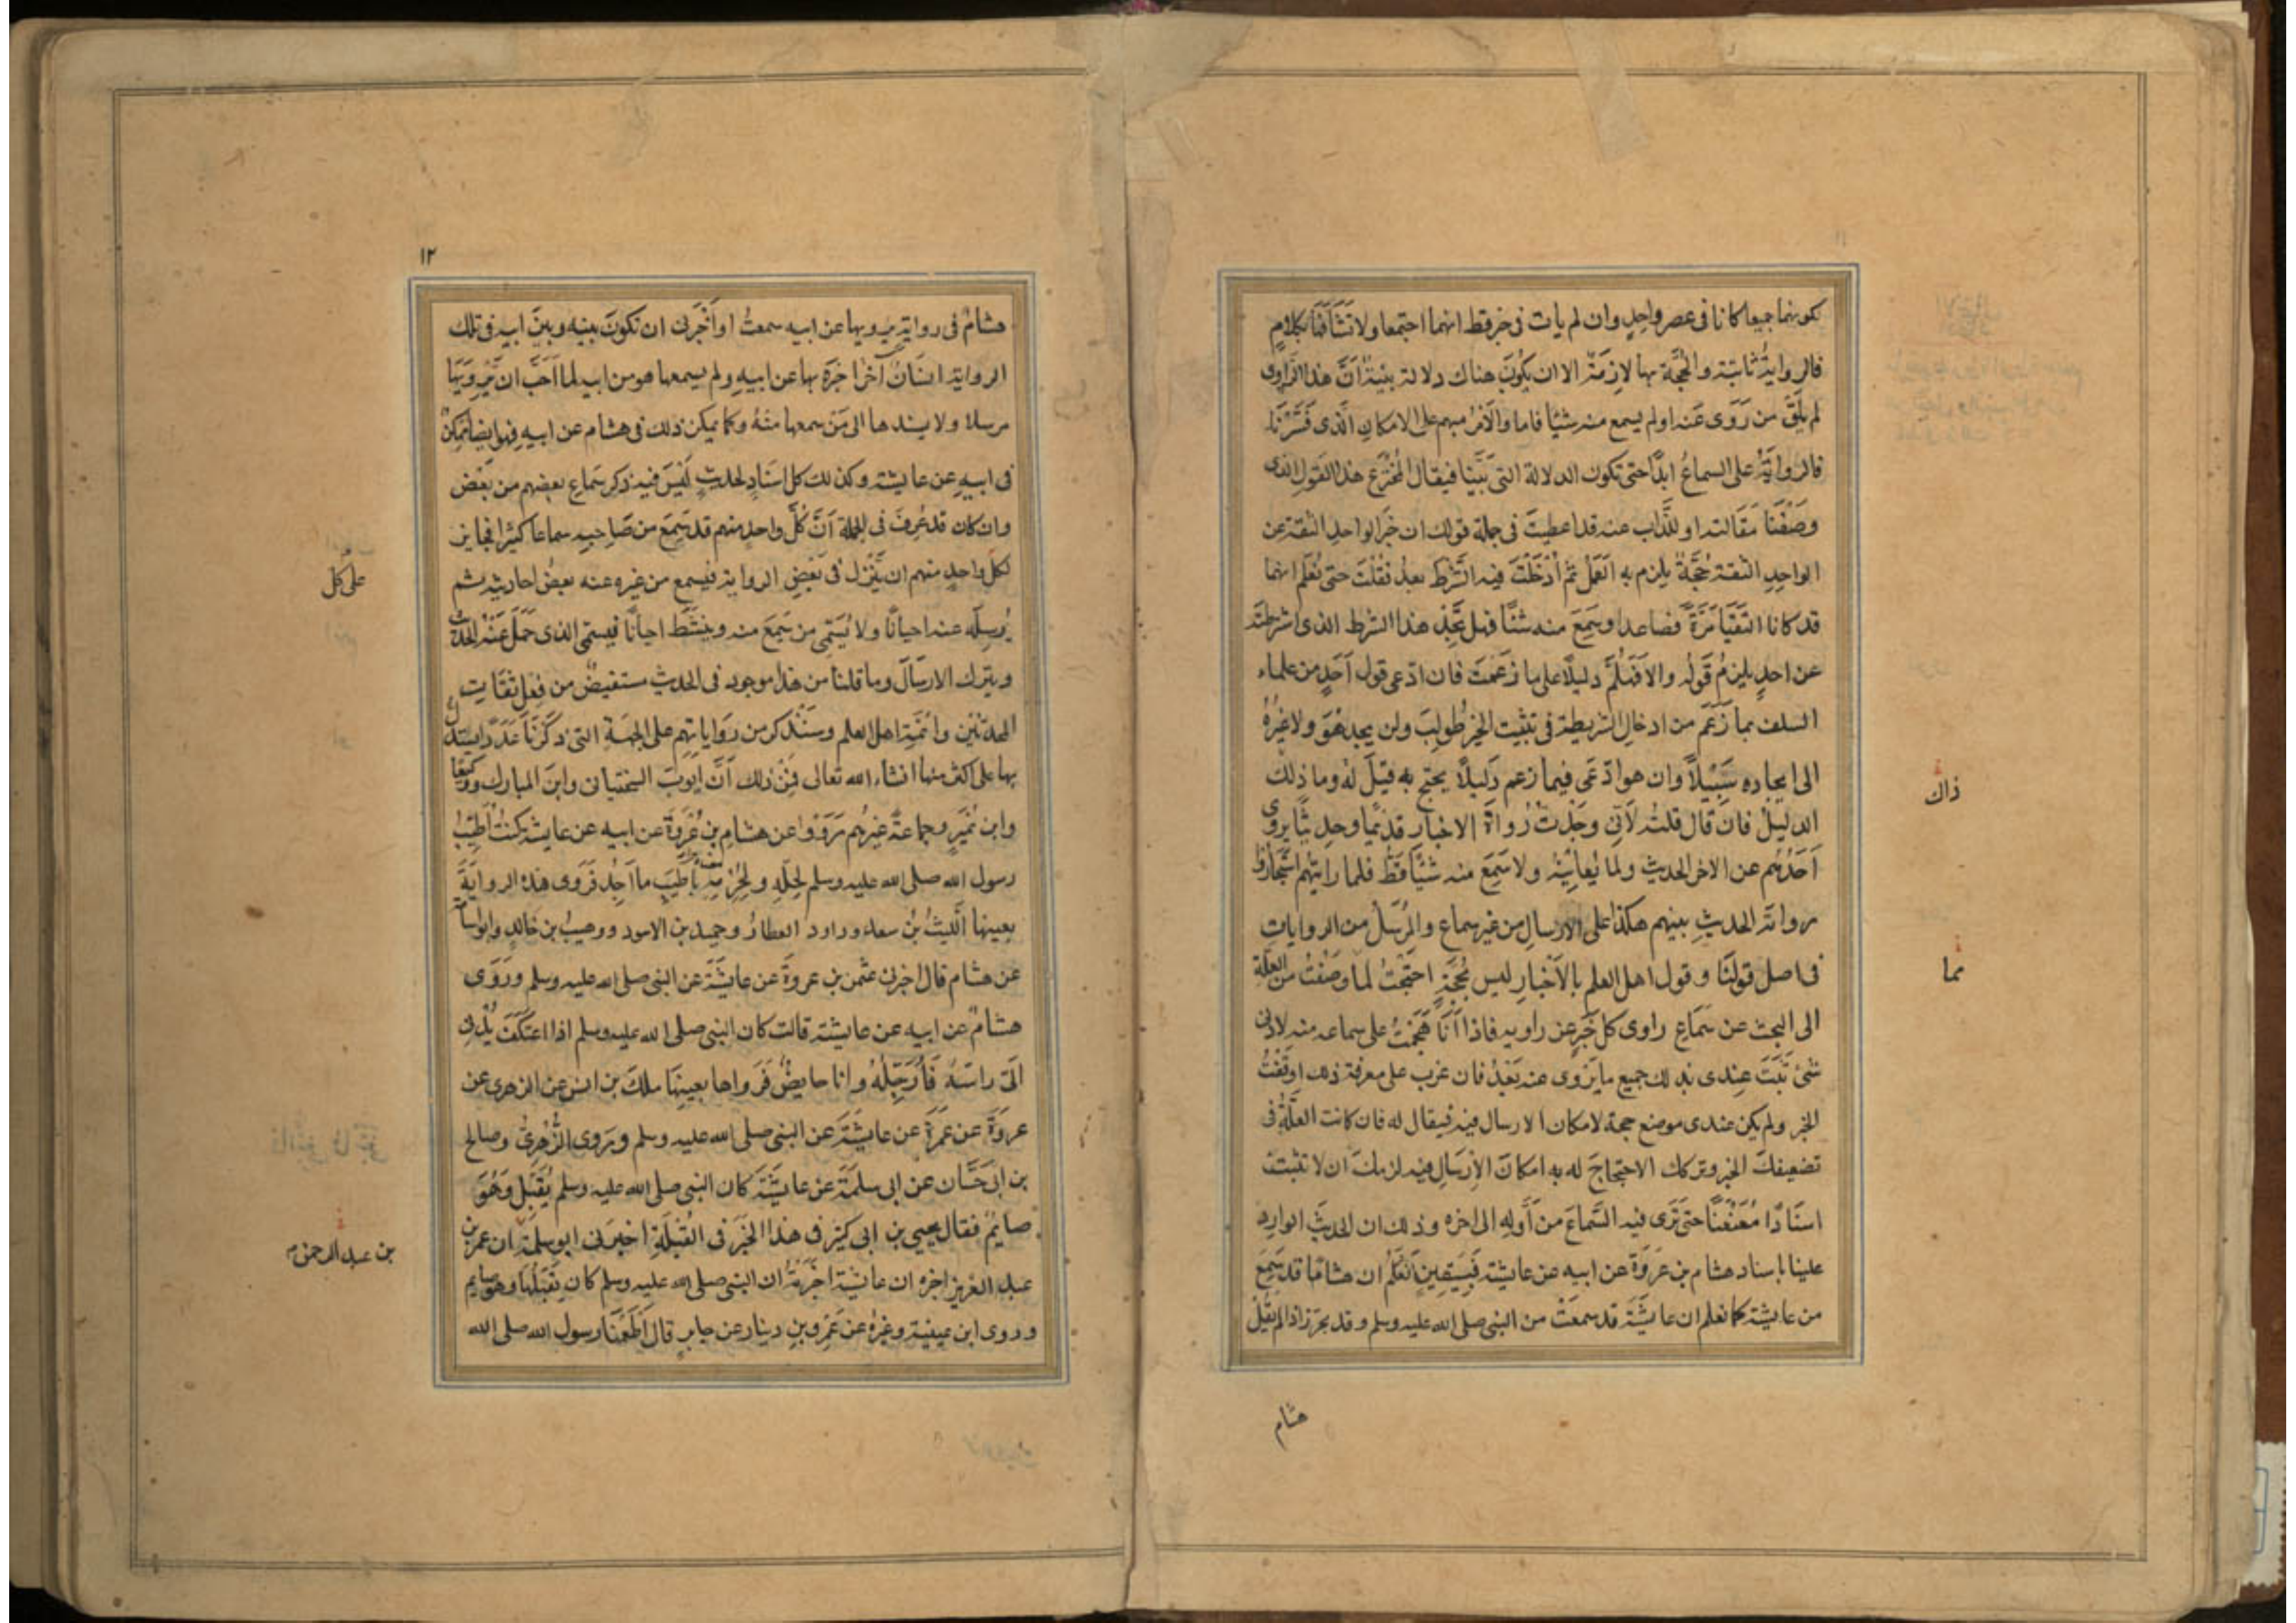 كونهما جميعا كانا فى عصر واحدٍ وان لم يات فى خبر قط انهما اجتمعا ولا تشافها بكلامٍ
فالروايةُ ثابتة والحُجَّة بها لازمَةٌ الا ان يكُونَ هناك دلالة بينة اَنَّ هذا الراوى
لم يلقَ من رَوَى عنه او لم يسمع منه شيئا فاما والاَمرُ مبهم على الامكانِ الَّذى فَسَّرْنَا
فالروايَةُ على السماعُ ابدًا حتى تكون الدلالة التى بَيَّنا فيقال لمُخترِع هذا القولِ الذى
وصَفْنَا مَقَالته او للذَّاب عنه قد اعطيتَ فى جملة قولك ان خبر الواحدِ الثقة عن
الواحدِ الثقة حُجَّةٌ يلزم به العَمَل ثم أدْخَلْتَ فيه الشَّرطَ بعدُ فقُلتَ حتى نُعلَم انهما
قد كانا التَقَيَا مَرَّةً فصاعدا وسَمِعَ منه شيئًا فهل تَجِدُ هذا الشرط الذى اشترطته
عن احدٍ يلزمُ قَولُه والا فَهَلُمَّ دليلًا على ما زَعَمْتَ فان ادّعى قول اَحَدٍ من علماء
السلف بما زَعَمَ من ادخالِ الشريطة فى تثبيت الخبر طُولِبَ ولن يجد هُوَ ولا غيرُهُ
الى ايجاده سَبِيْلًا وان هو ادّعَى فيما زعم دَليلًا يحتج به قيْلَ له وما ذلك
الدليلُ فان قال قلتُه لأنّى وجَدْتُ رُواةَ الاخبار قديمًا وحديثًا يروى
اَحَدُهُم عن الاخر الحديث ولما يُعايِنْهُ ولا سَمِعَ منه شيْئًا قَطُّ فلما رايتهم استجازوا
رواية الحديثِ بينهم هكذا على الارسالِ من غير سماع والمُرسَل من الروايات
فى اصل قولنَا وقول اهل العلم بالاَخبارِ ليس بحُجّةٍ احتَجْتُ لما وصَفْتُ من العلّة
الى البحث عن سَمَاع راوى كل خَبرٍ عن راويه فاذا انَا هَجَمْتُ على سماعه منه لادنى
شئ ثَبَتَ عِندى بذلك جميع ما يَروى عنه بَعْدُ فان عزب على معرفة ذلك اوقَفْتُ
الخبر ولم يكن عندى موضع حجة لامكان الارسال فيه فيقال له فان كانت العلّةُ فى
تضعيفكَ الخبر وتركك الاحتجاجَ له به امكانَ الاِرسَالِ فيه لزمكَ ان لا تثبتَ
اسنَادًا مُعَنعَنًا حتى تَرى فيه السَّماعَ من أَوّله الى اخره وذلك ان الحديثَ الوارد
علينا باسناد هشام بن عروَةَ عن ابيه عن عايشة فَبِيَقينٍ نَعلَمُ ان هشامًا قد سَمِعَ
من عايشة كما نعلم ان عايشَةَ قد سمعَتْ من النبى صلى الله عليه وسلم وقد يجوز اذا لم يقُل
ذاك
مما
هشام
١٢
هشامٌ فى رواية يرويها عن ابيه سمعتُ او أخْبَرنى ان تكونَ بينه وبينَ ابيه فى تلك
الرواية انسَانٌ آخرُ اخبَرَه بها عن ابيهِ ولم يسمعها هو من ابيه لما اَحَبَّ ان يَروِيَهَا
مرسلا ولا يسندها الى مَن سمعها منهُ وكما يمكن ذلك فى هشام عن ابيهِ فهو ايضا يمكِنُ
فى ابيهِ عن عايشة وكذلك كل اسنَادٍ لحديثٍ لَيْسَ فيه ذكر سَماعِ بعضهم من بَعْض
وان كان قد عُرِفَ فى الجملة اَنَّ كُلَّ واحدٍ منهم قد سَمِعَ من صَاحبِه سماعا كثيرا فجايز
لكل واحدٍ منهم ان يَنْزِلَ فى بَعْضِ الرواية فيسمع من غيره عنه بعضَ احاديثه ثم
يُرسِلُه عنه احيانًا ولا يُسَمّى من سَمِعَ منه وينشَطُ احيانًا فيسمّى الذى حَمَلَ عَنْهُ الحديثَ
ويترك الارسَالَ وما قلنا من هذا موجود فى الحديث مستفيضٌ من فِعل ثقات
المحدّثين وائمَّةِ اهل العلم وسَنَذكر من رواياتِهم على الجهَة التى ذكَرْنَا عَدَدًا يستدل
بها على اكثر منها انشاء الله تعالى فمِنْ ذلك اَنَّ ايّوبَ السختيانى وابنَ المبارك ووكيعًا
وابن نُمَيرٍ وجماعةً غيرهم رَوَوْا عن هشامِ بنِ عُروَةَ عن ابيه عن عايشة كنتُ اُطَيّبُ
رسول الله صلى الله عليه وسلم لِحِلّه ولحُرْمه بأطيَبِ ما اَجِدُ فرَوَى هذه الروايةَ
بعينها الّليثُ بْنُ سعد وداود العطارُ وحميد بن الاسود ووهيبُ بن خالدٍ وابو اسامة
عن هشام قال اخبرنى عثمن بن عروةَ عن عايشَةَ عن النبى صلى الله عليه وسلم ورَوَى
هشامٌ عن ابيه عن عايشة قالت كان النبى صلى الله عليه وسلم اذا اعتَكَفَ يُدْنى
الىَّ راسَهُ فَأُرَجِّلُهُ وانا حايضٌ فَرَواها بعينِهَا ملكُ بن انس عن الزهرى عن
عروةَ عن عَمْرَةَ عن عايشَةَ عن النبى صلى الله عليه وسلم ويَروى الزُّهرِىُّ وصالح
بن ابى حَسَّان عن ابى سلمَةَ عن عايشَةَ كان النبى صلى الله عليه وسلم يُقَبّلُ وَهُوَ
صايمٌ فقال يحيى بن ابى كثير فى هذا الخَبَر فى القُبلَةِ اخبرنى ابو سلمَةَ ان عمر بن
عبد العزيز اخبره ان عايشة اخبَرَتْهُ ان النبى صلى الله عليه وسلم كان يُقَبّلُها وهو صايم
وروى ابن عيينة وغيرُهُ عن عَمْرِو بنِ دينار عن جابرٍ قال اَطعَمَنا رسول الله صلى الله
على كُل
بن عبد الرحمن